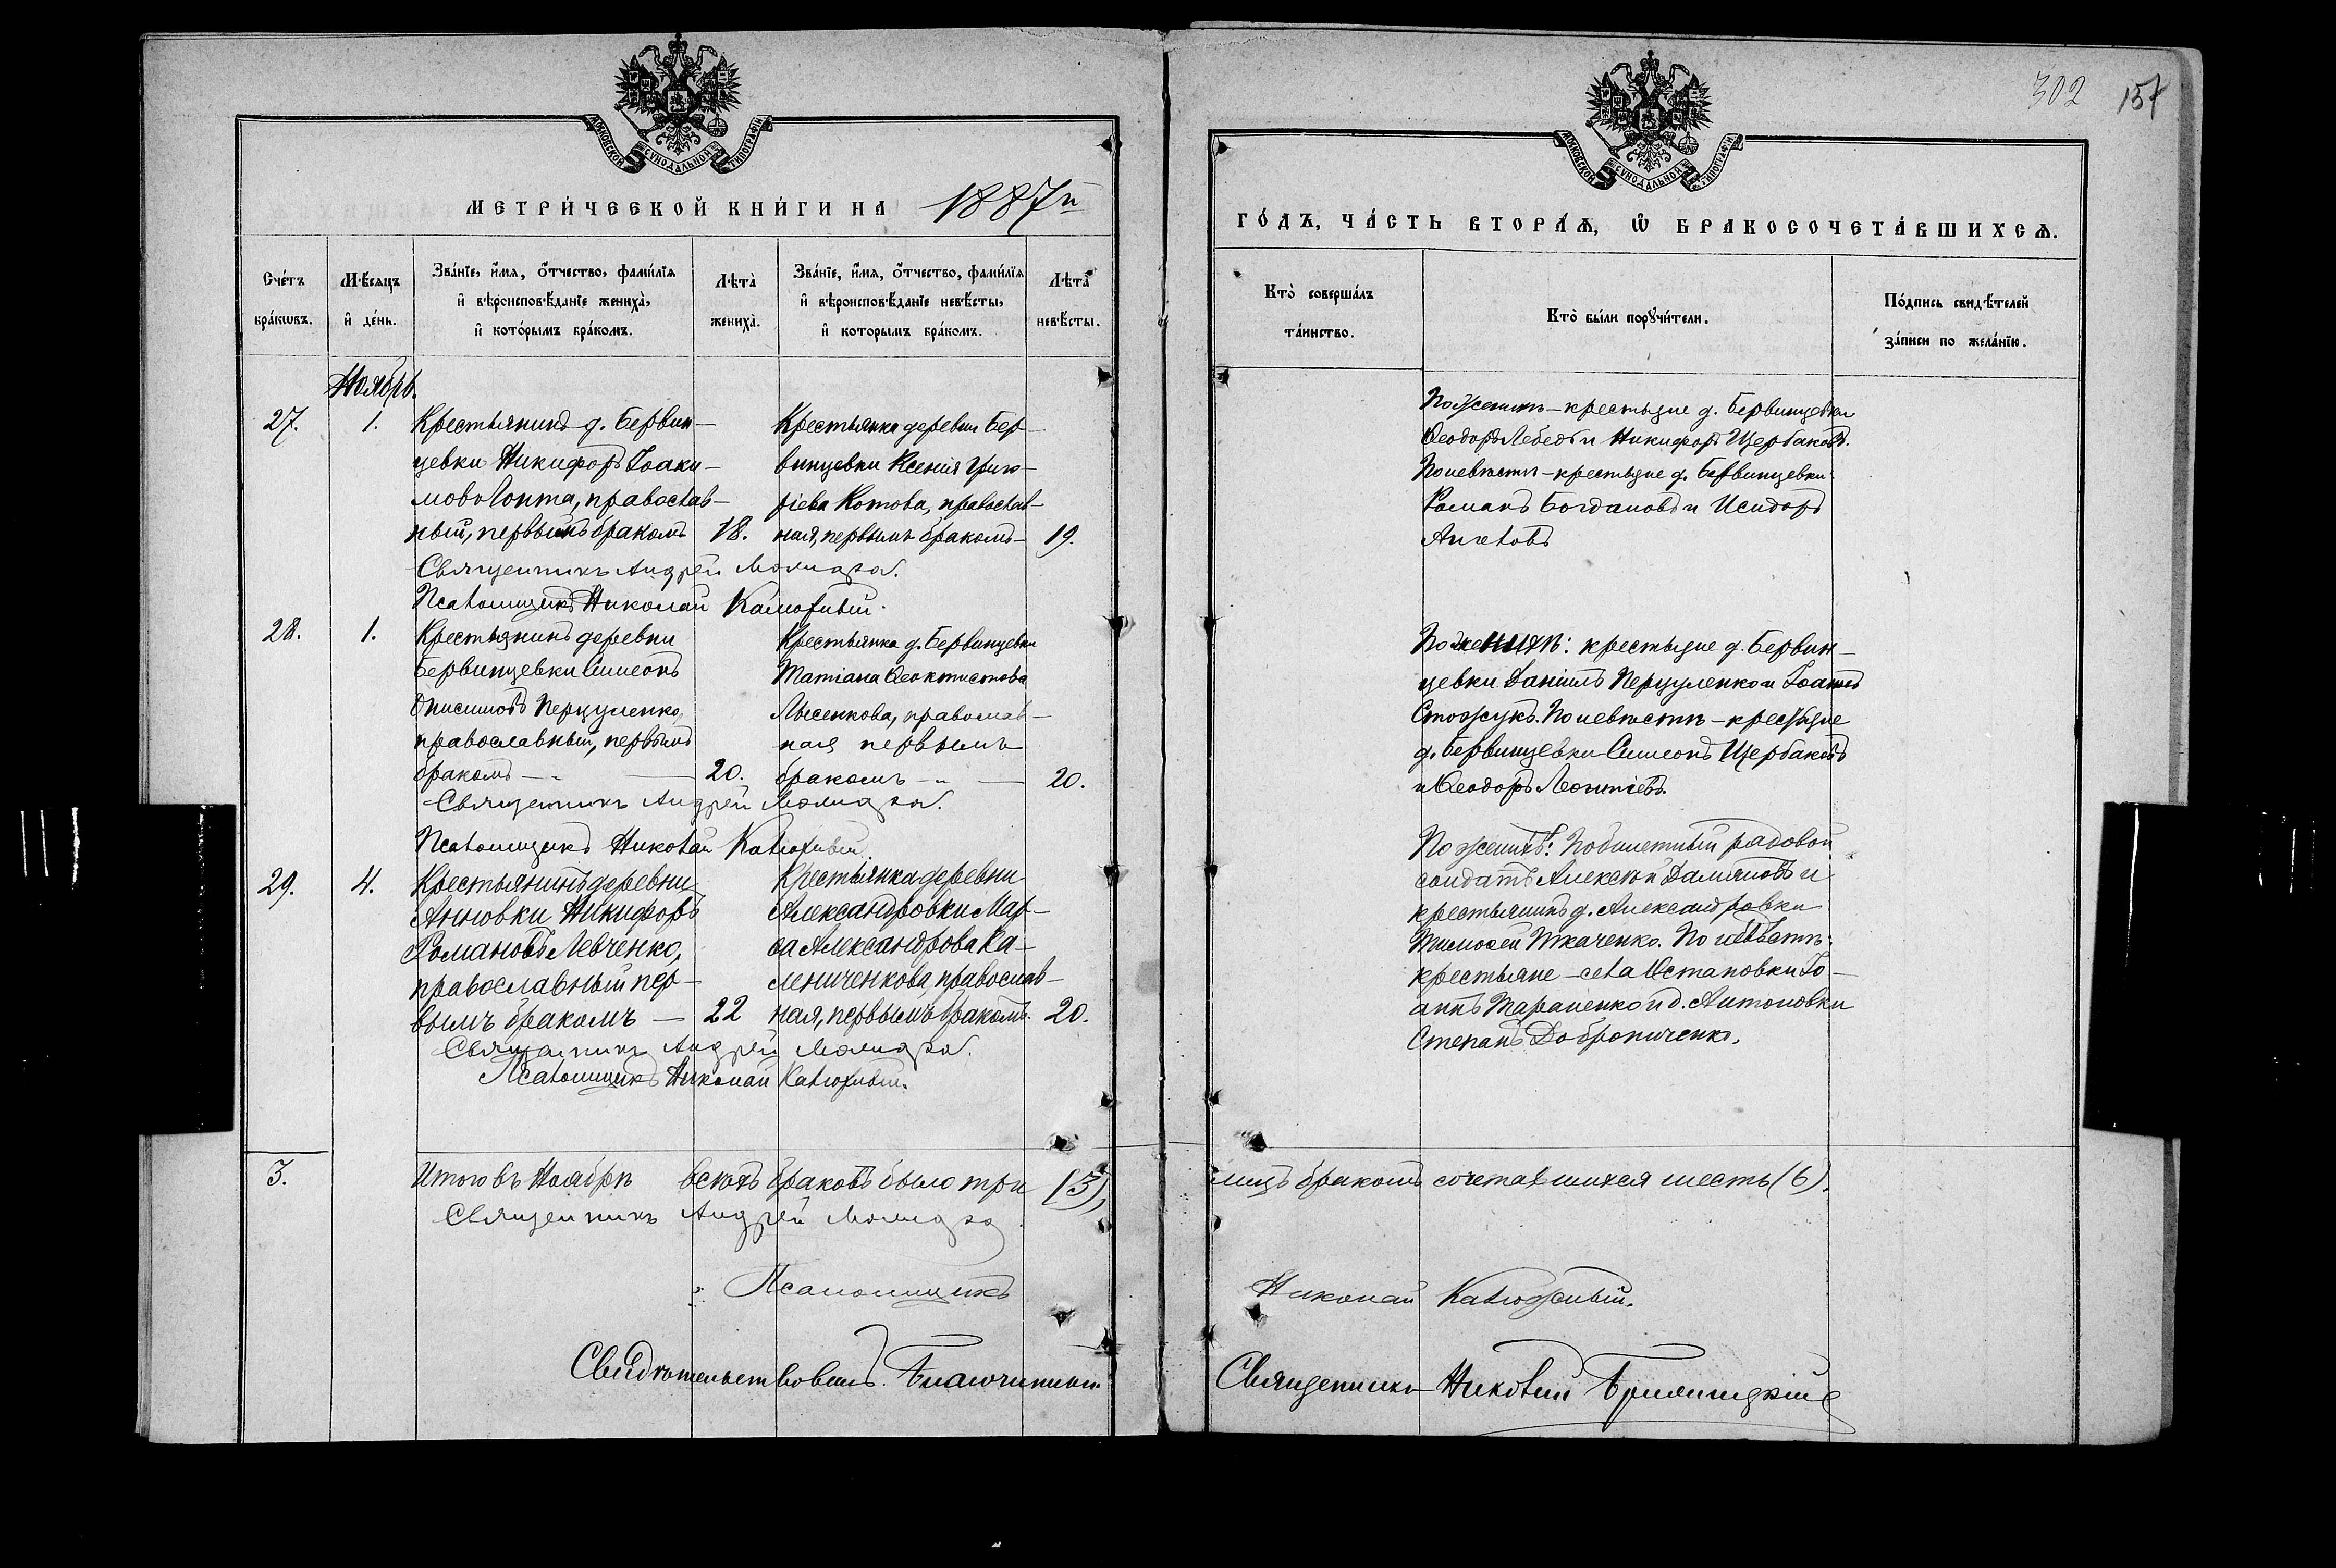 302 157
МОСКОВСКОЙ СУНОДАЛЬНОЙ ТИПОГРАФІИ
МЕТРИ́ЧЕСКОЙ КНИ́ГИ НА 1887й
Сче́тъ бра́кωвъ.
Мѣ́сяцъ и҆ де́нь.
Зва́нїе, и҆́мѧ, ѻ҆́тчество, фамй́лїѧ
и҆ вѣроисповѣ́данїе женихà,
и҆ кото́рымъ бра́комъ.
Лѣтà женихà.
Зва́нїе, и҆́мѧ, ѻ҆́тчество, фамй́лїѧ
и҆ вѣроисповѣ́данїе невѣ́сты,
и҆ которымъ бра́комъ.
Лѣтà невѣ́сты.
Ноябрь.
27.
1.
Крестьянинъ д. Бервин-
цевки Никифоръ Іоаки-
мовъ Гонта, православ-
ный, первымъ бракомъ
18.
Крестьянка деревни Бер-
винцевки Ксенія Григо-
ріева Котова, православ-
ная, первымъ бракомъ-
19.
Священникъ Андрей
Псаломщикъ Николай Калюжный.
28.
1.
Крестьянинъ деревни
Бервинцевки Симеонъ
Онисимовъ Перцуленко,
православный, первымъ
бракомъ — „ —
20.
Крестьянка д. Бервинцевки
Татіана Ѳеоктистова
Лысенкова, православ-
ная первымъ
бракомъ — „ —
20.
Священникъ Андрей
Псаломщикъ Николай Калюжный.
29.
4.
Крестьянинъ деревни
Анновки Никифоръ
Романовъ Левченко,
православный пер-
вымъ бракомъ —
22
Крестьянка деревни
Александровки Мар-
ѳа Александрова Ка-
лениченкова, православ-
ная, первымъ бракомъ.
20.
Священникъ Андрей
Псаломщикъ Николай Калюжный.
3.
Итого въ Ноябрѣ всѣхъ браковъ было три (3),
Священникъ Андрей
Псаломщикъ
Свидѣтельствовалъ. Благочинный
МОСКОВСКОЙ СУНОДАЛЬНОЙ ТИПОГРАФІИ
ГО́ДЪ, ЧА́СТЬ ВТОРА́Ѧ, Ѡ҆ БРАКОСОЧЕТА́ВШИХСѦ.
Кто̀ соверша́лъ та́инство.
Кто̀ бы́ли порꙋчи́тели.
По́дпись свидѣ́телей
за́писи по жела́нїю.
По женихѣ - крестьяне д. Бервинцевки
Ѳеодоръ Лебедь и Никифоръ Щербаковъ.
По невѣстѣ - крестьяне д. Бервинцевки
Романъ Богдановъ и Исидоръ
По женихѣ: крестьяне д. Бервин-
цевки Даніилъ Перцуленко и Іоаннъ
Стожукъ. По невѣстѣ - крестьяне
д. Бервинцевки Симеонъ Щербаковъ
и Ѳеодоръ Леонтіевъ.
По женихѣ: Побилетный рядовой
солдатъ Алексѣй Даміановъ и
крестьянинъ д. Александровки
Тимоѳей Ткаченко. По невѣстѣ:
крестьяне - села Остаповки Іо-
аннъ Тараненко и д. Антоновки
Степанъ
лицъ бракомъ сочетавшихся шесть (6).
Николай Калюжный.
Священникъ Николай